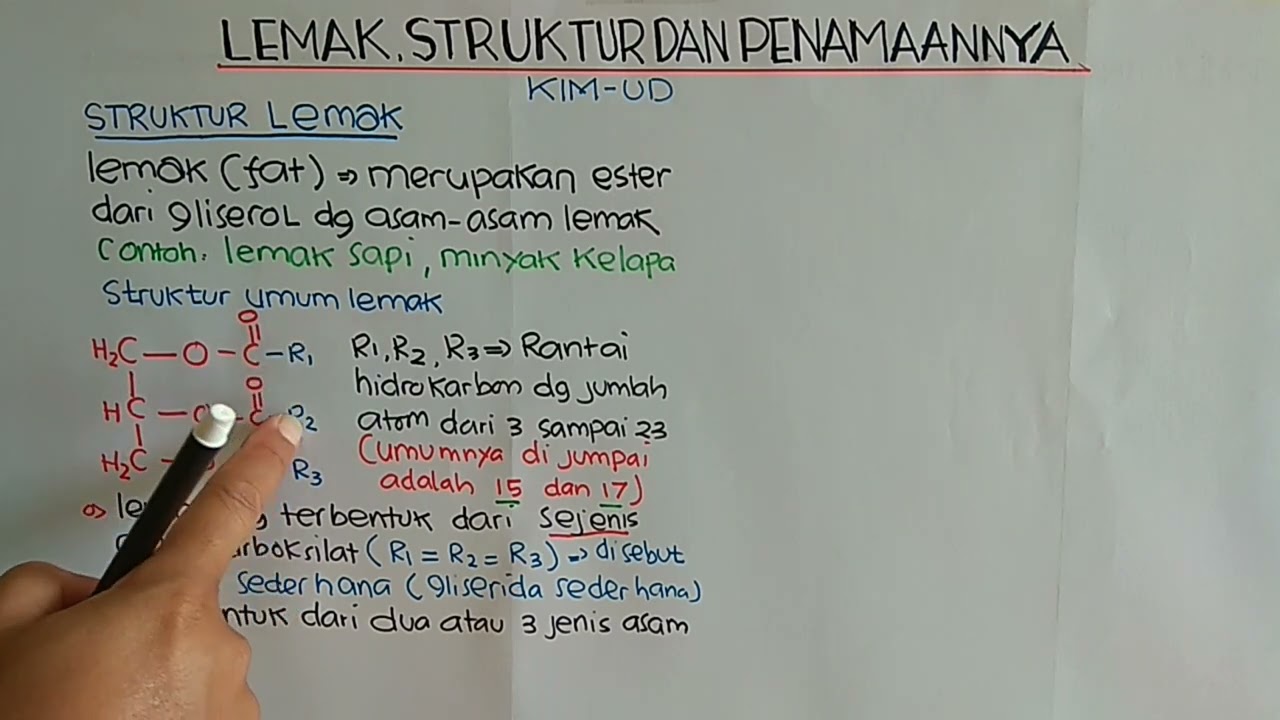 LEMAK, STRUKTUR DAN PENAMAANNYA
KIM-UD
STRUKTUR Lemak
lemak (fat) => merupakan ester
dari gliseroL dg asam-asam lemak
Contoh: lemak sapi, minyak kelapa
Struktur umum lemak
O
H₂C — O - C - R₁
O
HC — C R₂
H₂C — R₃
R₁, R₂, R₃ => Rantai
hidrokarbon dg jumlah
atom dari 3 sampai 23
(umumnya di jumpai
adalah 15 dan 17)
terbentuk dari sejenis
(R₁ = R₂ = R₃) => disebut
sederhana (gliserida sederhana)
dari dua atau 3 jenis asam